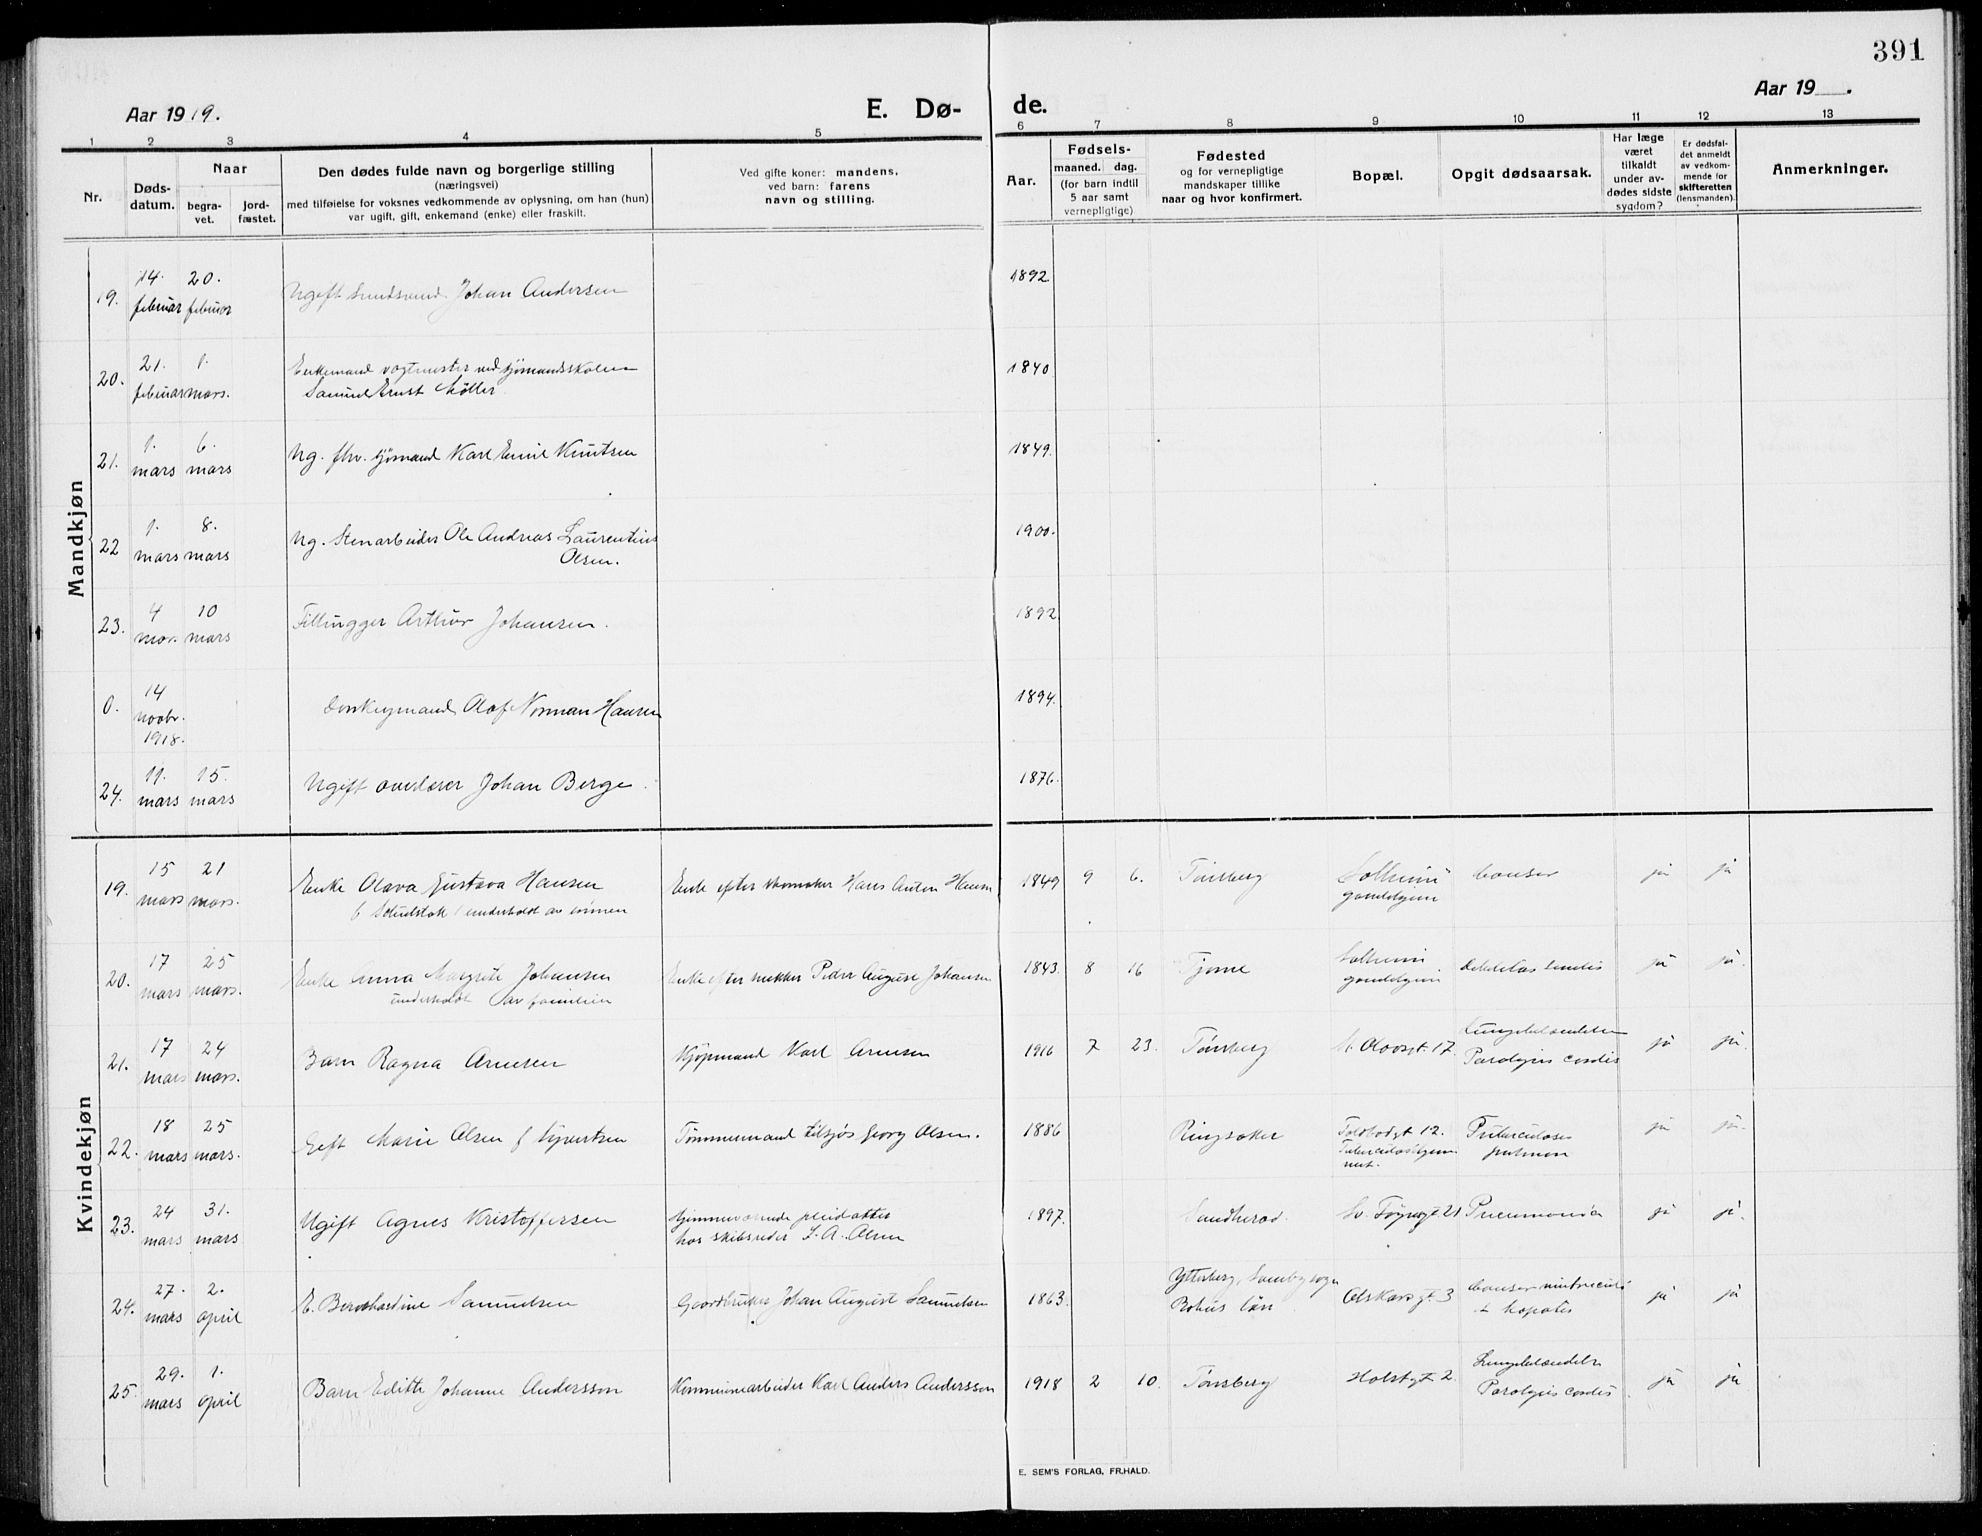 391
Aar 1919.
E. Dø-
de.
Aar 19 .
1 2 3 4 5 6 7 8 9 10 11 12 13
Nr.
Døds-
datum.
Naar
begra-
vet.
jord-
fæstet.
Den dødes fulde navn og borgerlige stilling
(næringsvei)
med tilføielse for voksnes vedkommende av oplysning, om han (hun)
var ugift, gift, enkemand (enke) eller fraskilt.
Ved gifte koner: mandens,
ved barn: farens
navn og stilling.
Aar.
Fødsels-
maaned. dag.
(for barn indtil
5 aar samt
vernepligtige)
Fødested
og for vernepligtige
mandskaper tillike
naar og hvor konfirmert.
Bopæl.
Opgit dødsaarsak.
Har læge
været
tilkaldt
under av-
dødes sidste
sygdom?
Er dødsfal-
det anmeldt
av vedkom-
mende for
skifteretten
(lensmanden).
Anmerkninger.
Mandkjøn
14. 20.
19. februar februar Ugift Johan Andersen 1892
21. 1.
20. februar mars. Enkemand vagtmester ved sjømandsskolen 1840
Samuel Ernst Møller
1. 6.
21. mars mars Ug. fhv. sjømand Karl Emil Knutsen 1849.
1. 8.
22 mars mars Ug. Stenarbeider Ole Andreas Laurentius 1900.
Olsen.
4 10
23. mar. mars Arthur Johansen. 1892
14
0. novbr. Donkeymand Olof Norman Hansen 1894.
1918.
11. 15.
24. mars mars Ugift overlærer Johan Berge 1876.
Kvindekjøn
15 21
19. mars mars. Enke Olava Gustava Hansen Enke efter skomaker Hans Anton Hansen 1849 9 6. Tønsberg Solheim Cancer ja ja
underholdt av sønnen gamlehjem
17 25
20. mars mars. Enke Anna Margrete Johansen Enke efter Peder August Johansen 1843. 8 16 Tjøme Solheim ja ja.
underholdt av familien gamlehjem
17 24
21. mars mars. Barn Ragna Arnesen Kjøpmand Karl Arnesen 1916 7 23. Tønsberg St. Olavsgt. 17. Lungebetændelse ja ja.
Paralysis cordis
18 25
22. mars mars. Gift Marie Olsen f. Syvertsen Tømmermand tilsjøs Georg Olsen. 1886 Ringsaker Toldbodgt 12. Tuberculosis ja ja.
pulmon
24 31.
23. mars mars Ugift Agnes Kristoffersen Hjemmeværende pleiedatter 1897. Sandherad. Pneumonia ja ja.
hos skibsreder S. A. Olsen
27. 2.
24. mars april E. Bernhardine Samuelsen Gaardbruker Johan August Samuelsen 1863. Ytterberg, Tanby sogn gt. 3 Cancer ja ja
Bohus län hepatis
29. 1.
25. mars april Barn Edith Johanne Andersson Kommunearbeider Karl Anders Andersson 1918 2 10. Tønsberg Holstgt. 2. Lungebetændelse ja ja
Paralysis cordis
E. SEM'S FORLAG, FR.HALD.